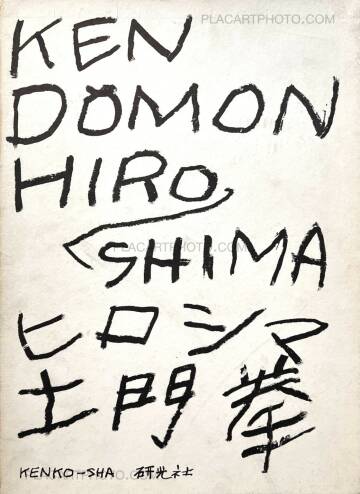 PLACARTPHOTO.COM
KEN
DOMON
HIRO
PLACARTPHOTO.COM
SHIMA
ヒロシマ
土門拳
KENKO-SHA 研光社
PLACARTPHOTO.COM